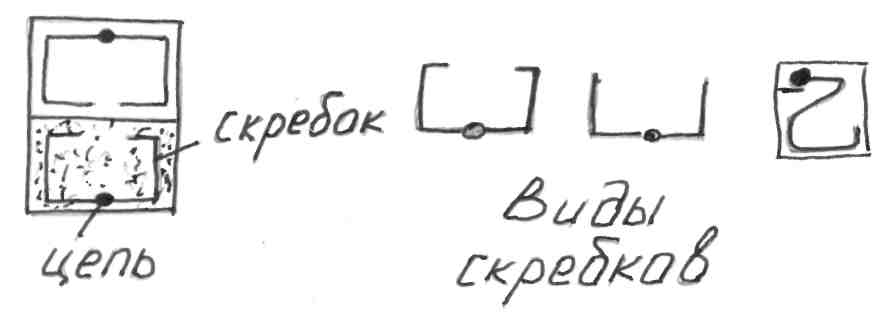 скребок
цепь
Виды
скребков